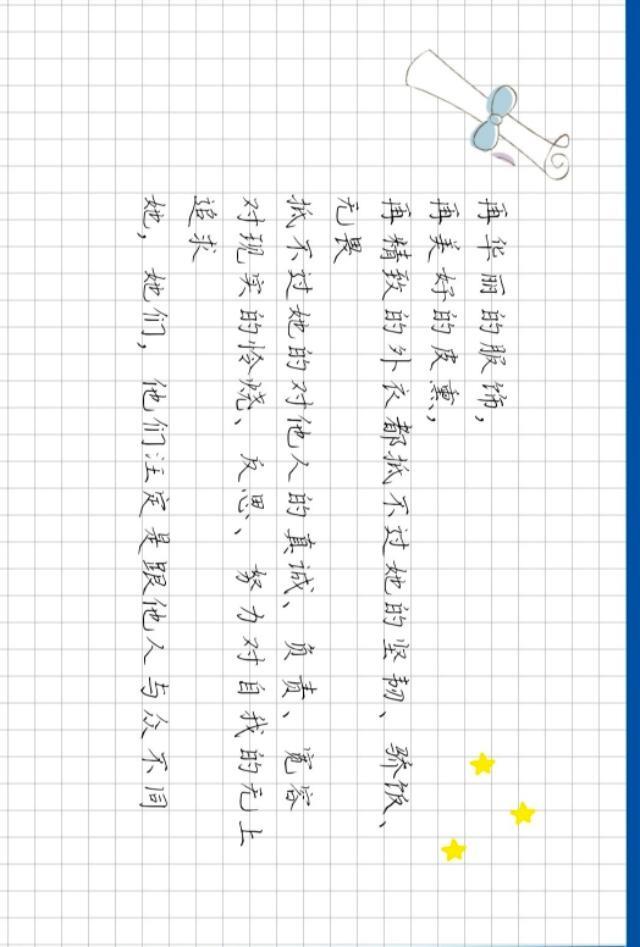 再华丽的服饰，
再美好的皮熏，
再精致的外衣都抵不过她的坚韧、骄饭、
无畏
抵不过她的对他人的真诚、负责、宽容
对现实的怜烧、反思、努力对自我的无上
追求
她，她们，他们注定是跟他人与众不同